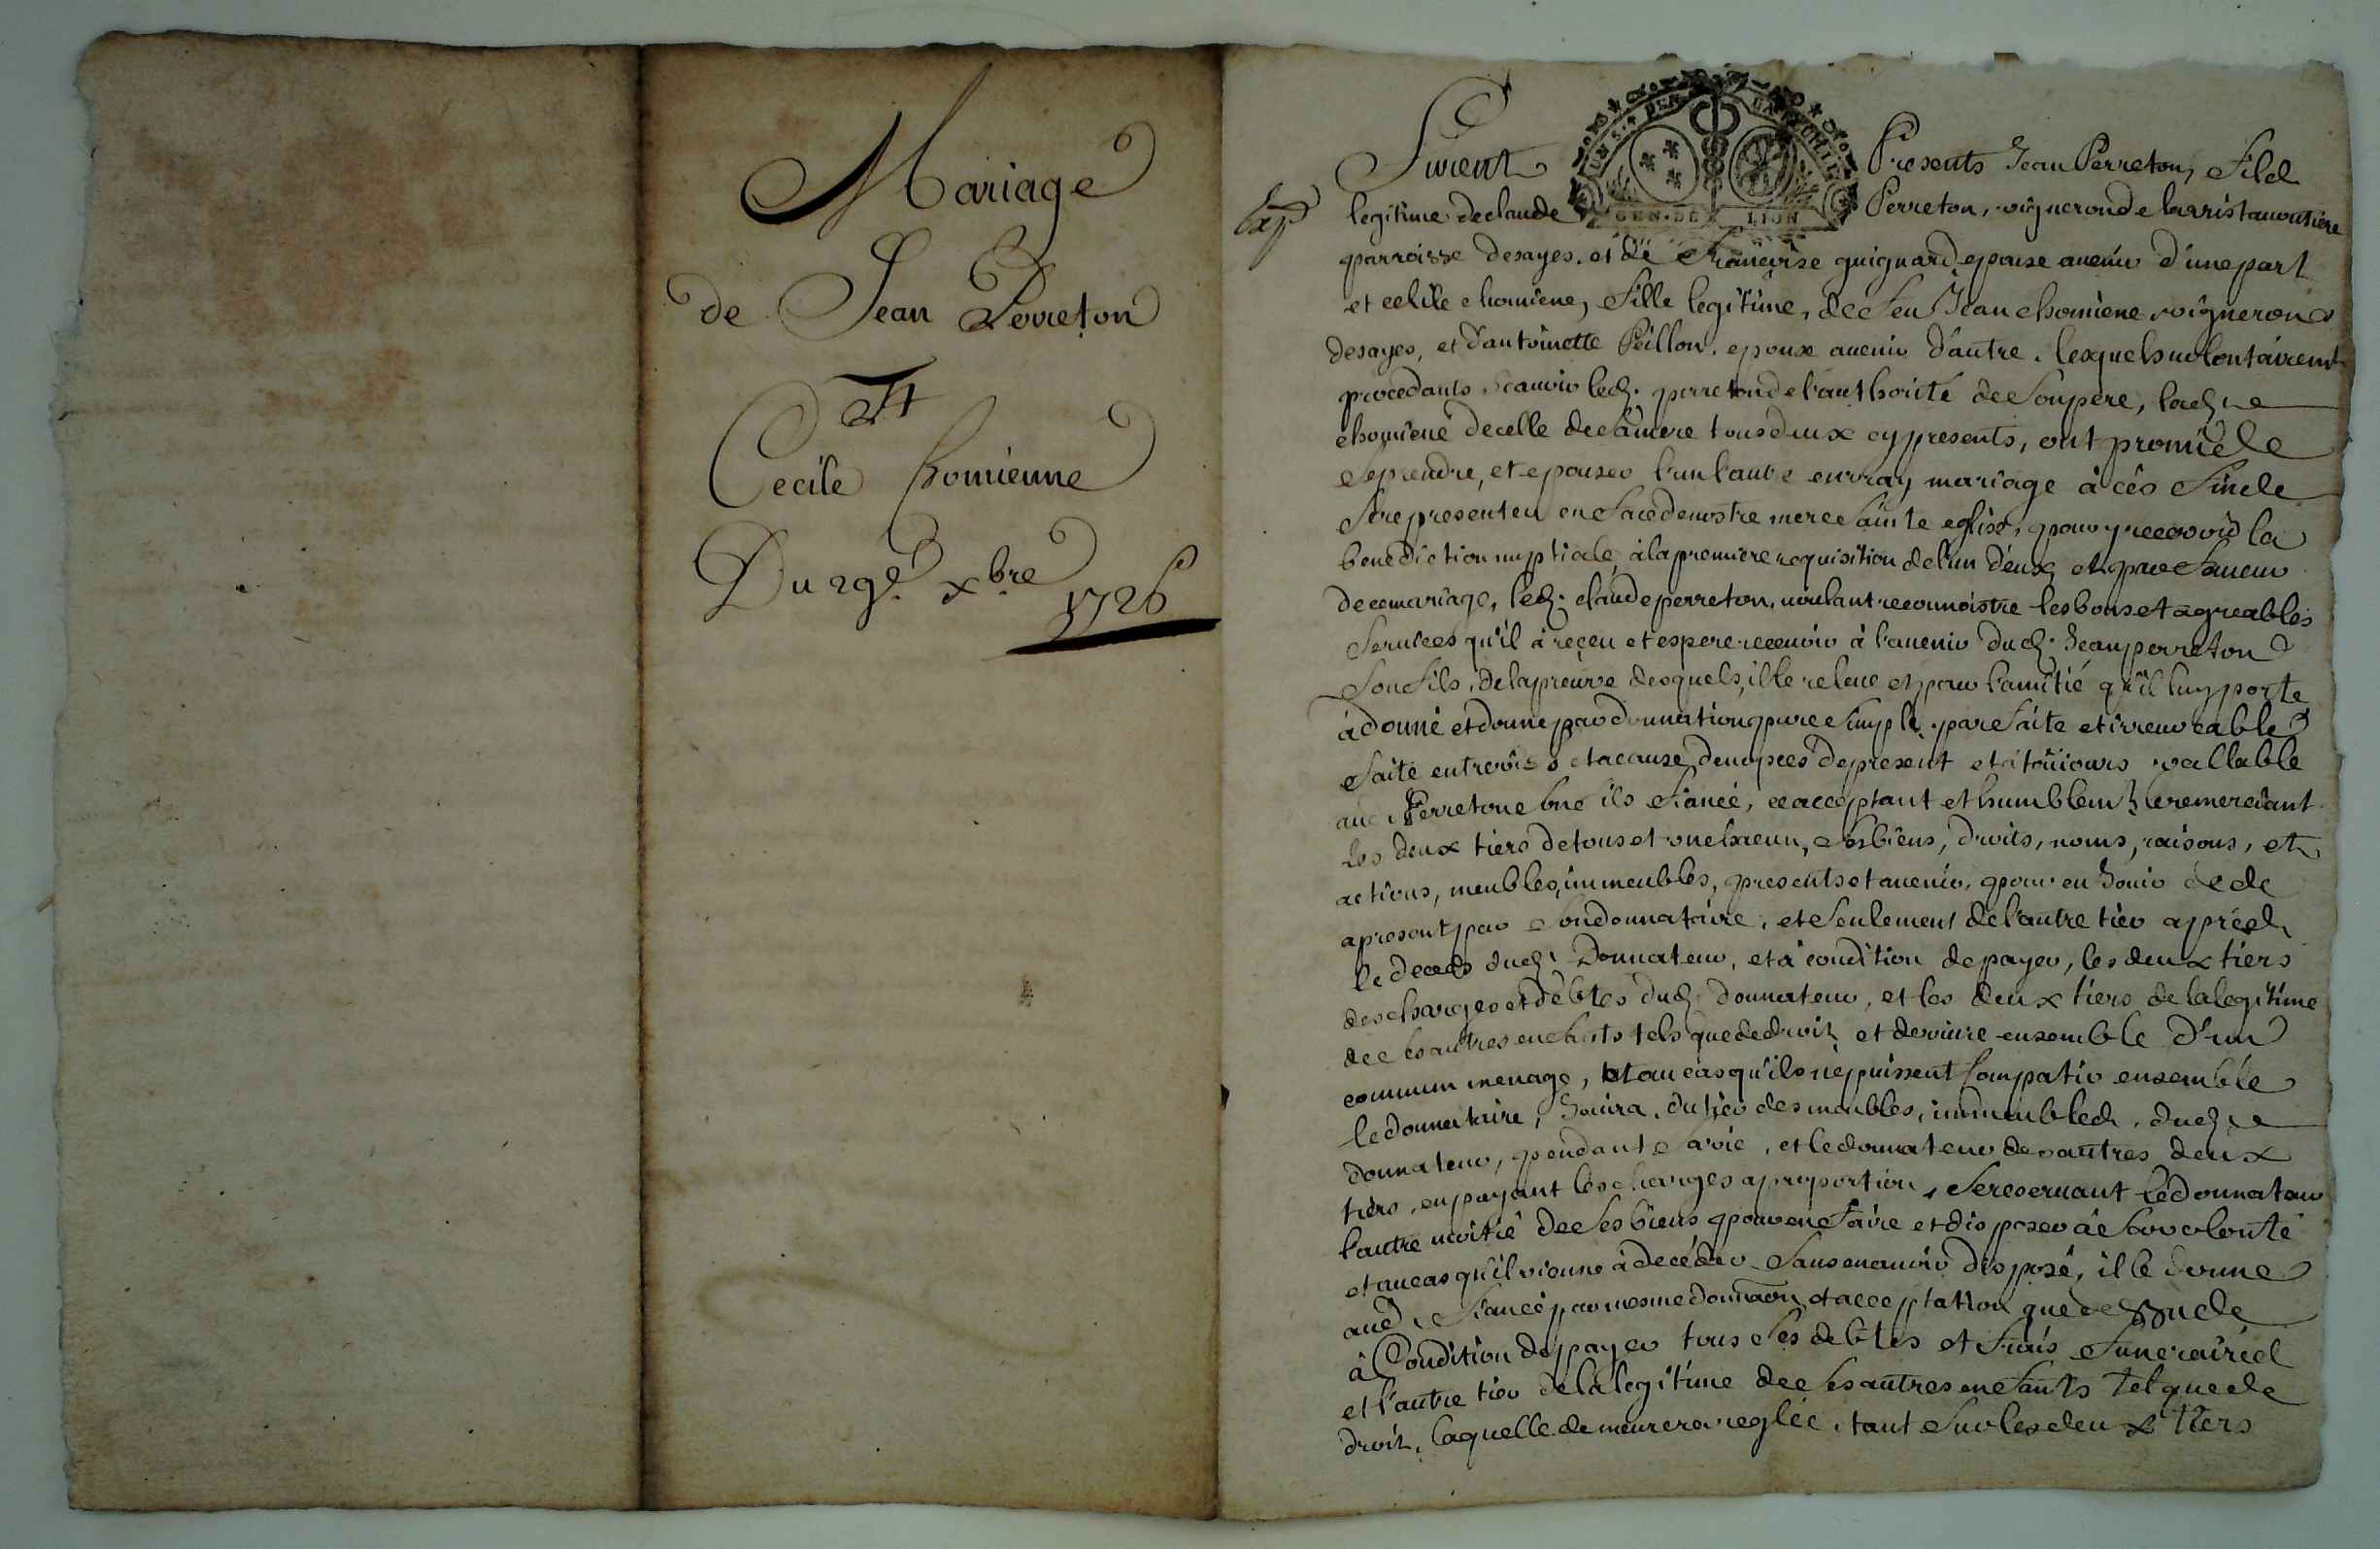 Mariage
de Jean Perreton
Et
Cecile Chomienne
Du 29e. xbre
1726
Exp
Furent Presents Jean Perreton, fils
legitime de claude Perreton, vigneron de
GEN. DE LION
parroisse desayes. et de françoise guignard, epoux auenir d'une part
et cecile chomiene, fille legitime, de feu Jean chomiene vigneron
desayes, et d'antoinette Peillon. epouse auenir d'autre. lesquels volontairemt
procedants scauoir led. perreton de l'authorité de son pere, lad.
chomiene de celle de sa mere tous deux cy presents, ont promis de
se prendre, et epouser l'un l'autre en vray mariage à ces fins de
se representer en face de nostre mere sainte eglise, pour y recevoir la
benediction nuptiale, à la premiere requisition de l'un d'eux, et en faueur
de ce mariage, led. claude perreton, voulant reconnoistre les bons et agreables
seruices qu'il à reçeu et espere receuoir à l'auenir dud. Jean perreton
son fils, de la preuve desquels, il le releue et pour l'amitié qu'il luy porte
à donné et donne par donnation pure simple, parfaite et irreuocable
faite entre vifs et a cause de nopces de present et à toûiours vallable
aud. Perreton son fils fiancé, ce acceptant et humblemt le remerciant
les deux tiers de tous et un chacun, ses biens, droits, noms, raisons, et
actions, meubles, immeubles, presents et auenir, pour en Jouir de de
a present par son donnataire, et seulement de l'autre tier apres
le deceds dud. Donnateur, et à condition de payer, les deux tiers
des charges et debtes dud. donnateur, et les deux tiers de la legitime
de ses autres enfants tels que de droit, et de viure ensemble d'un
commun menage, et au cas qu'ils ne puissent compatir ensemble
le donnataire, Jouira du tier des meubles, immeubles, dud.
donnateur, pendant sa vie, et le donnateur des autres deux
tiers, en payant les charges a proportion, se reseruant le donnateur
l'autre moitié de ses biens pour en faire et disposer à sa volonté
et au cas qu'il vienne à deceder sans en auoir disposé, il le donne
aud. fiancé par mesme donnaon et acceptation que dessus
à Condition de payer tous ses debtes et frais funeraires
et l'autre tier de la legitime de ses autres enfants tel que de
droit, laquelle demeurera reglée, tant sur les deux tiers